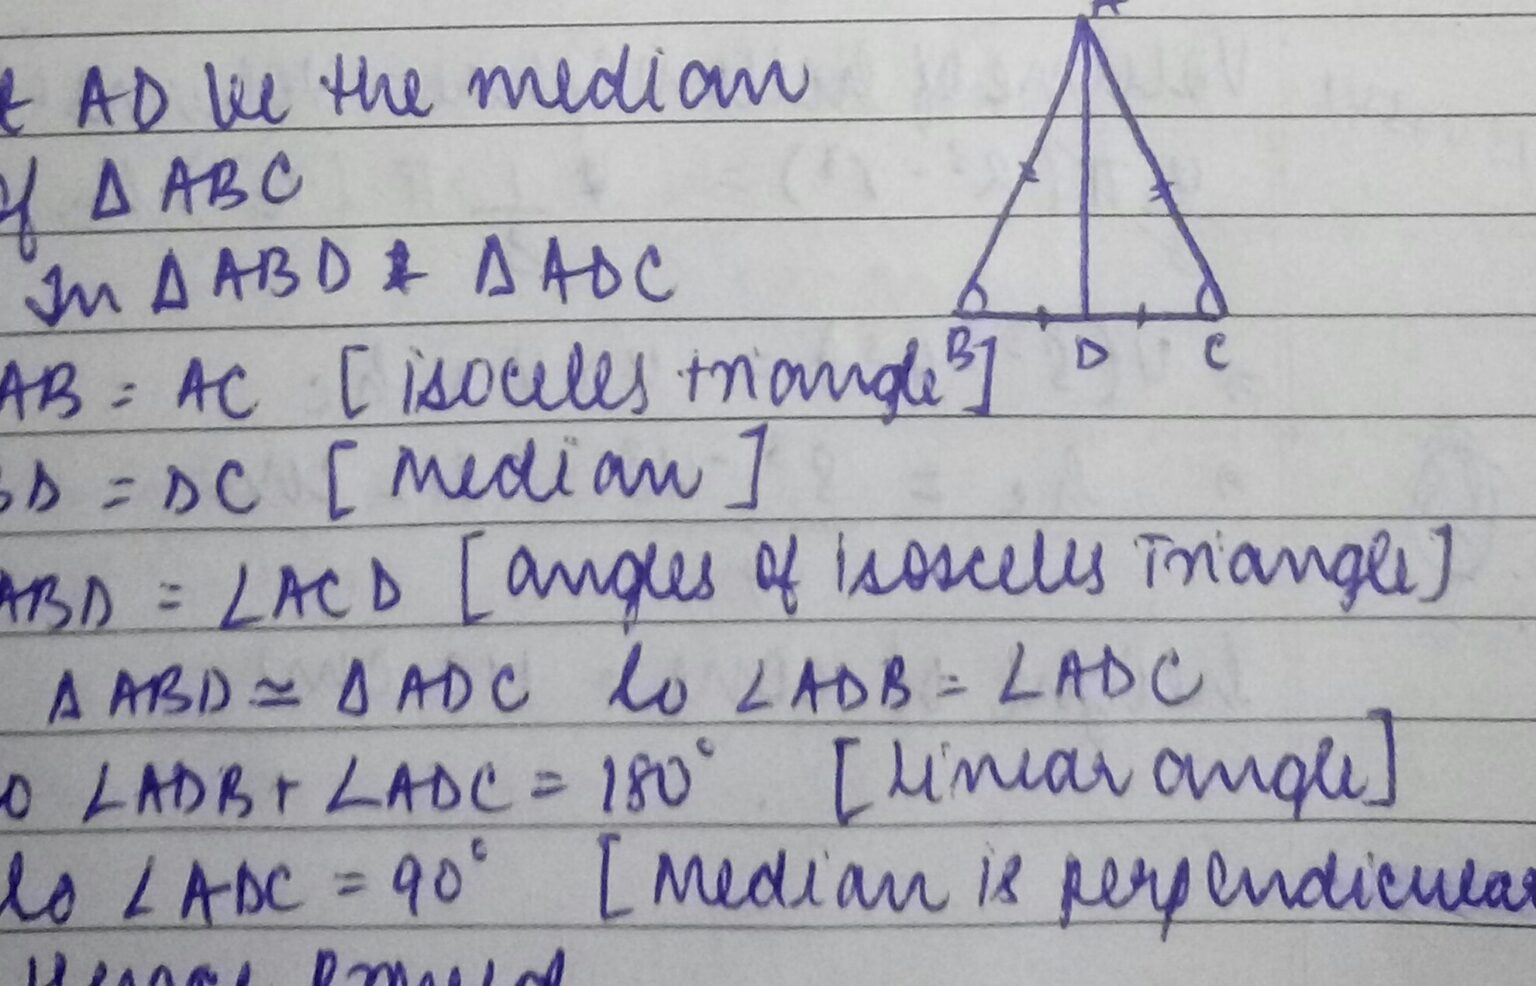 AD be the median
A
Δ ABC
In Δ ABD & Δ ADC
AB = AC [isoceles triangle]
B D C
BD = DC [Median]
ABD = ∠ACD [angles of isosceles Triangle]
Δ ABD ≃ Δ ADC So ∠ADB = ∠ADC
∠ADB + ∠ADC = 180° [Linear angle]
So ∠ADC = 90° [Median is perpendicular
Hence Proved